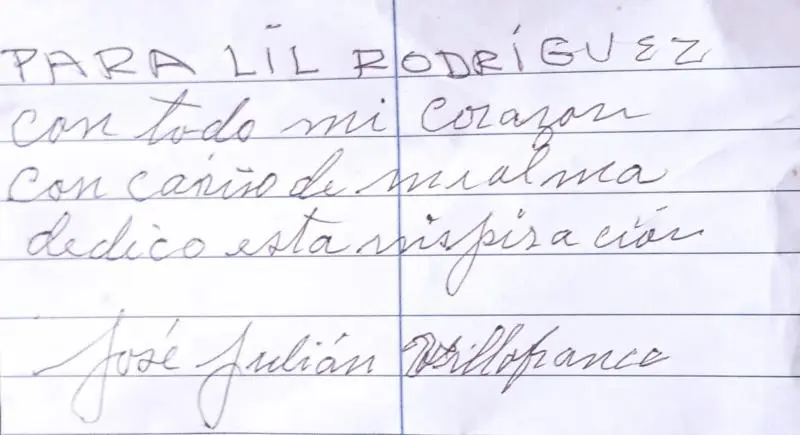 PARA LIL RODRÍGUEZ
con todo mi corazon
con cariño de mi alma
dedico esta inspiración
José Julián Villafranca